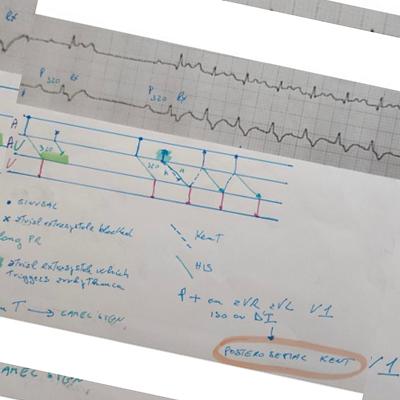 Rx
P 320 Rx
P 320 Rx
A
AV
V
320
320
SINUSAL
x atrial extrasystole blocked
long PR
atrial extrasystole which
triggers arrhythmia
T → CAMEL SIGN
Kent
HIS
P + en aVR aVL V1
ISO en DI
POSTEROSEPTAL KENT
V1
CAMEL SIGN